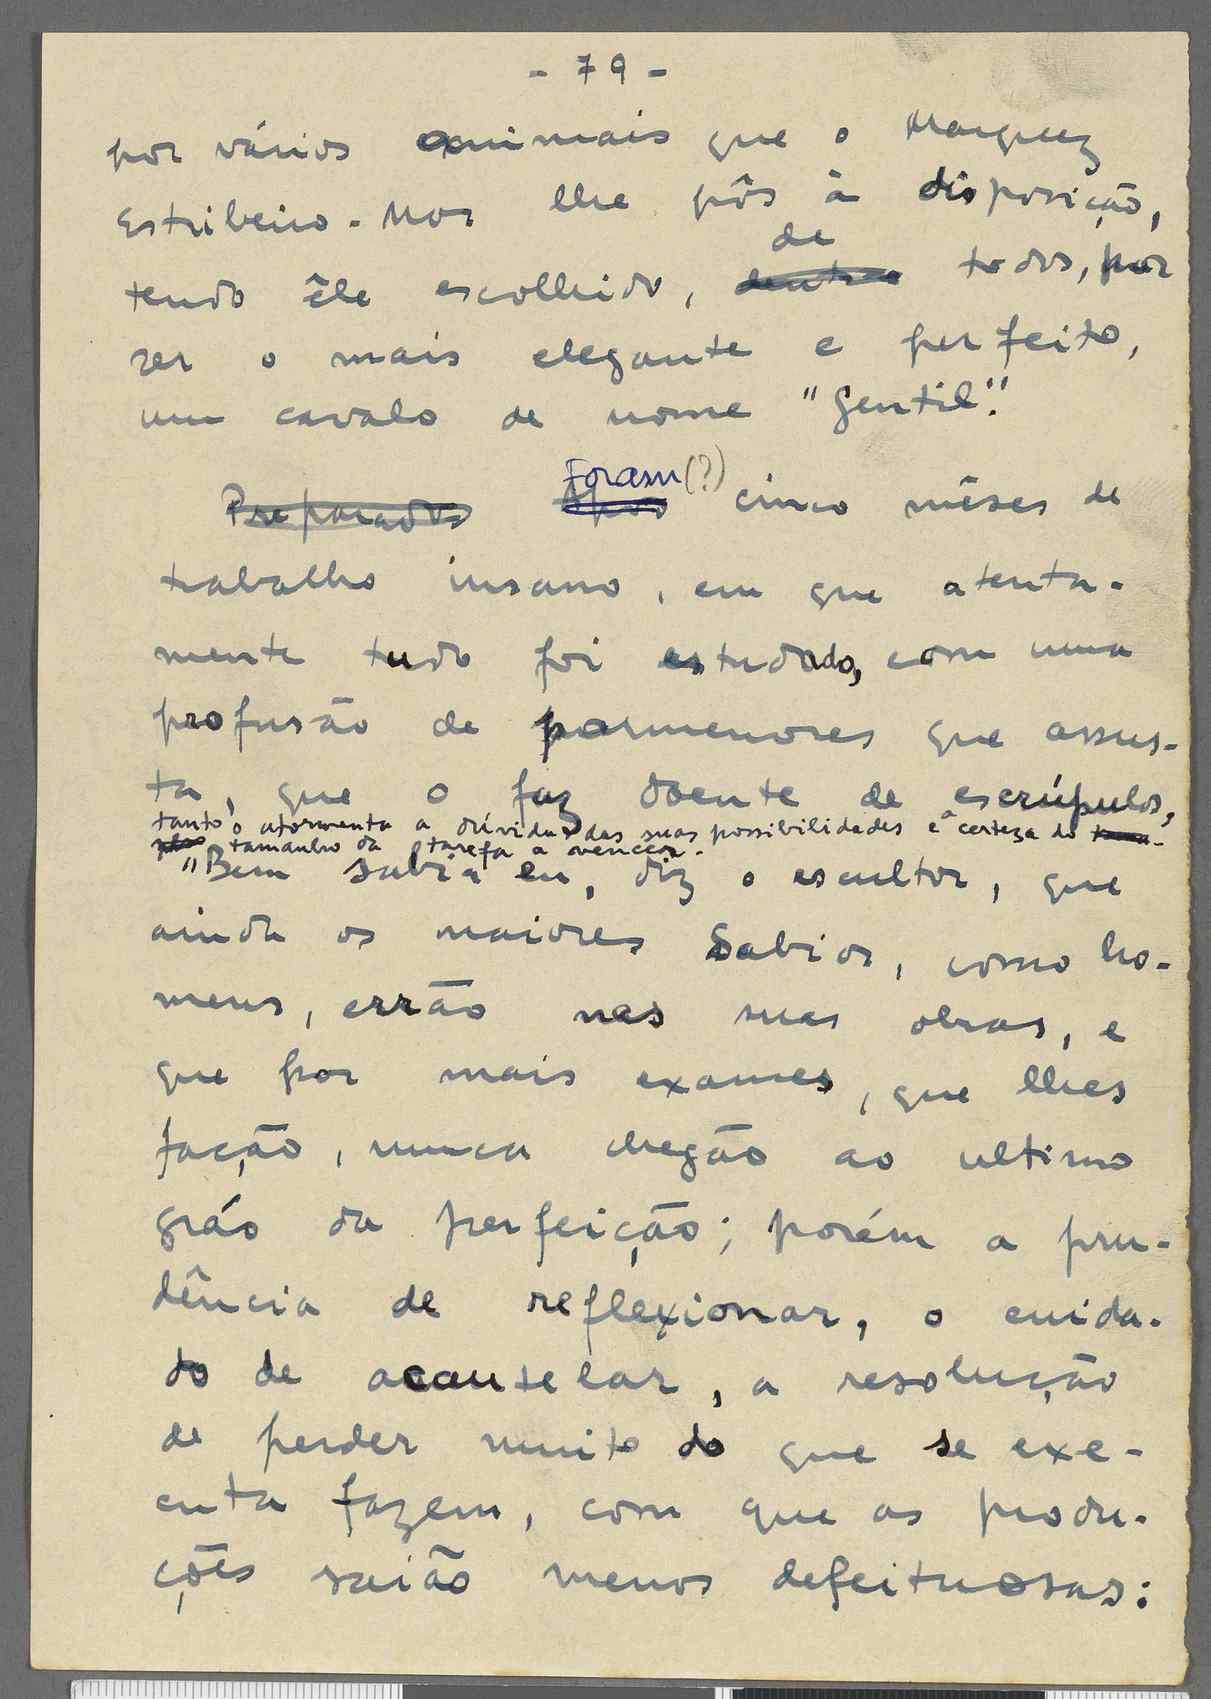 - 79 -
por vários animais que o Marquez
Estribeiro-Mor lhe pôs à disposição,
de
tendo êle escolhido, dentre todos, por
ser o mais elegante e perfeito,
um cavalo de nome "Gentil".
Foram (?)
Preparados Após cinco mêses de
trabalho insano, em que atenta-
mente tudo foi estudado, com uma
profusão de pormenores que assus-
ta, que o faz doente de escrúpulos,
tanto o atormenta a dúvida das suas possibilidades e a certeza do tama-
tamanho da tarefa a vencer.
"Bem sabia eu, diz o escultor, que
ainda os maiores Sabios, como ho-
mens, errão nas suas obras, e
que por mais exames, que lhes
fação, nunca chegão ao ultimo
gráo da perfeição; porém a pru-
dência de reflexionar, o cuida-
do de acautelar, a resolução
de perder muito do que se exe-
cuta fazem, com que as produ-
ções saião menos defeituosas: